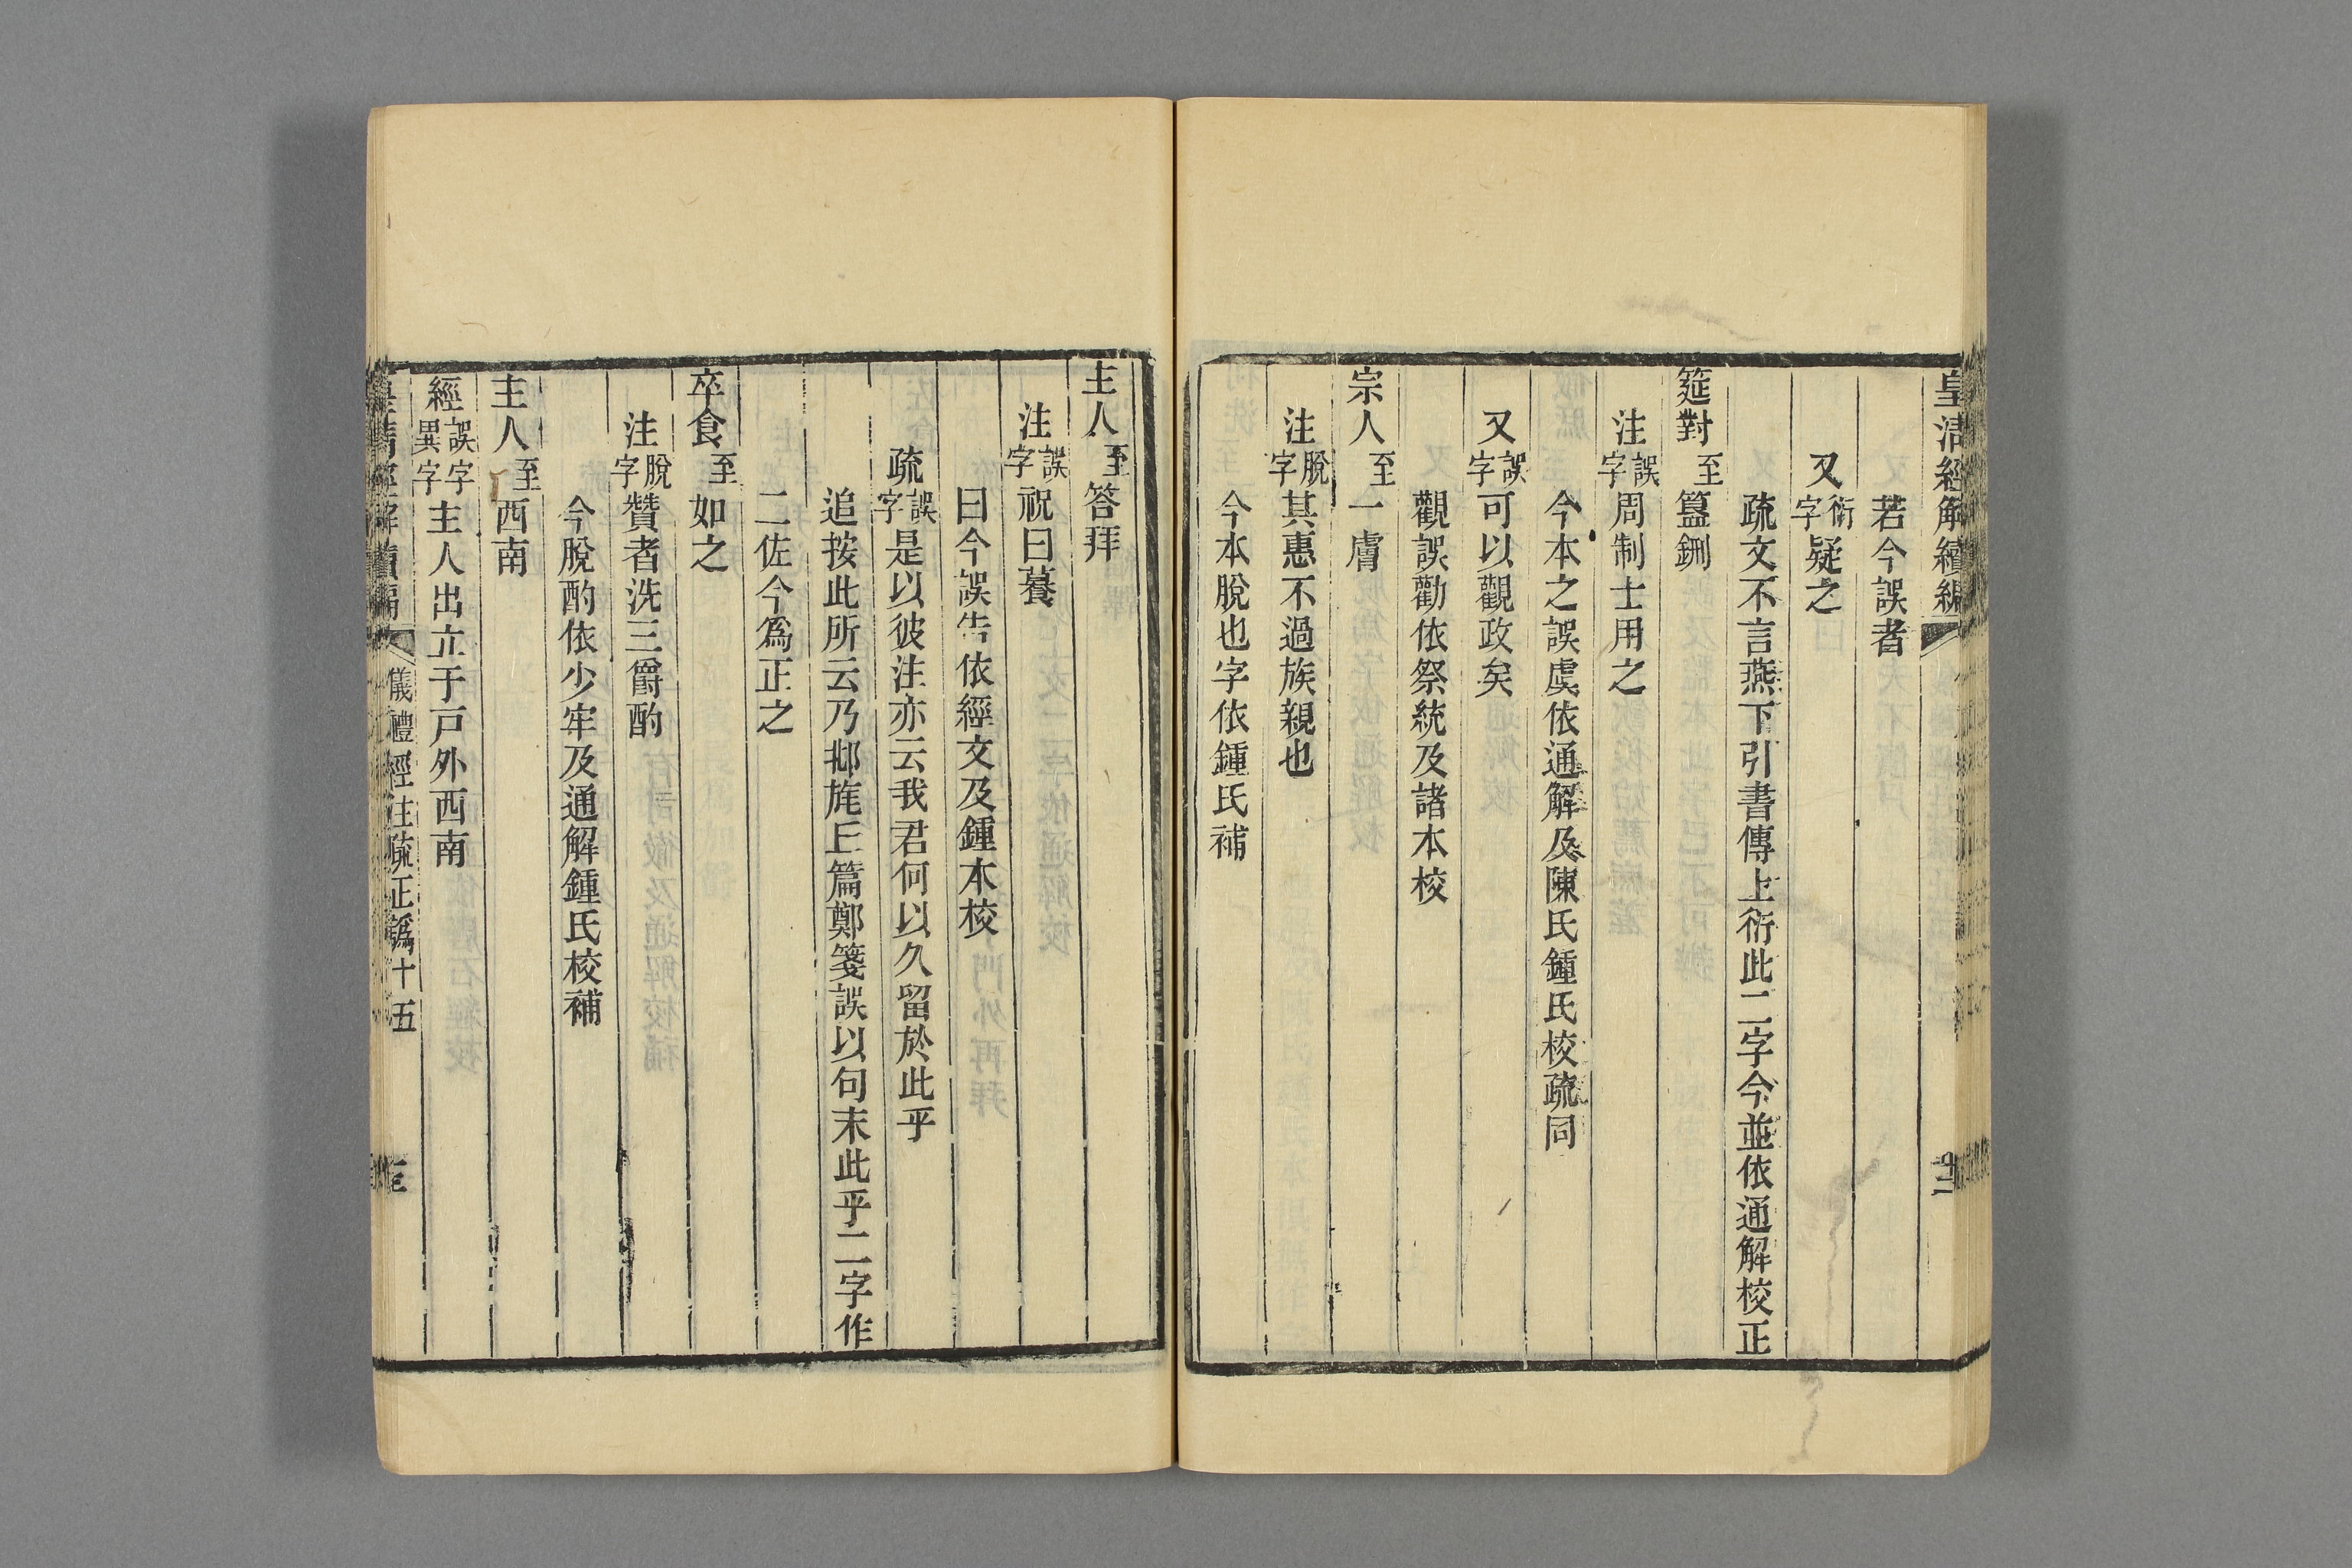 皇清經解續編
若今誤者
又衍字疑之
疏文不言燕下引書傳上衍此二字今並依通解校正
筵對至簋鉶
注誤字周制士用之
今本之誤虞依通解及陳氏鍾氏校疏同
又誤字可以觀政矣
觀誤勸依祭統及諸本校
宗人至一膚
注脫字其惠不過族親也
今本脫也字依鍾氏補
主人至答拜
注誤字祝曰䬸
曰今誤告依經文及鍾本校
疏誤字是以彼注亦云我君何以久留於此乎
追按此所云乃邶旄丘篇鄭箋誤以句末此乎二字作
二佐今為正之
卒食至如之
注脫字贊者洗三爵酌
今脫酌依少牢及通解鍾氏校補
主人至西南
經誤字異字主人出立于戸外西南
皇清經解續編 儀禮經注疏正譌十五